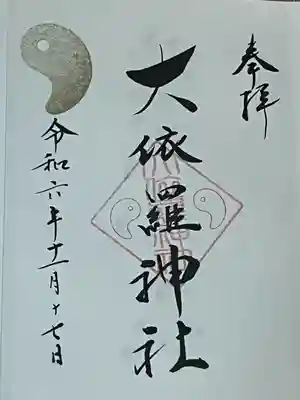 奉拝
大依羅神社
令和六年十一月十七日